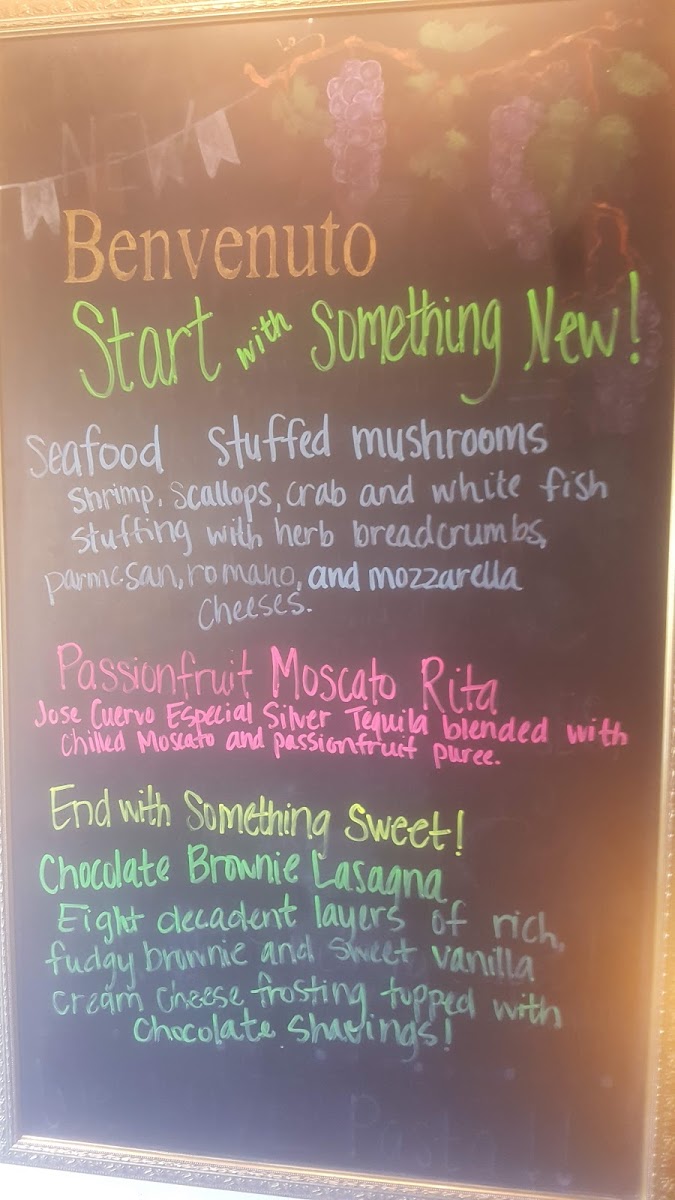 NEW
Benvenuto
Start with Something New!
Seafood Stuffed mushrooms
Shrimp, Scallops, Crab and white fish
Stuffing with herb breadcrumbs,
parmesan, romano, and mozzarella
Cheeses.
Passionfruit Moscato Rita
Jose Cuervo Especial Silver Tequila blended with
Chilled Moscato and passionfruit puree.
End with Something Sweet!
Chocolate Brownie Lasagna
Eight decadent layers of rich,
fudgy brownie and sweet vanilla
cream cheese frosting topped with
Chocolate shavings!